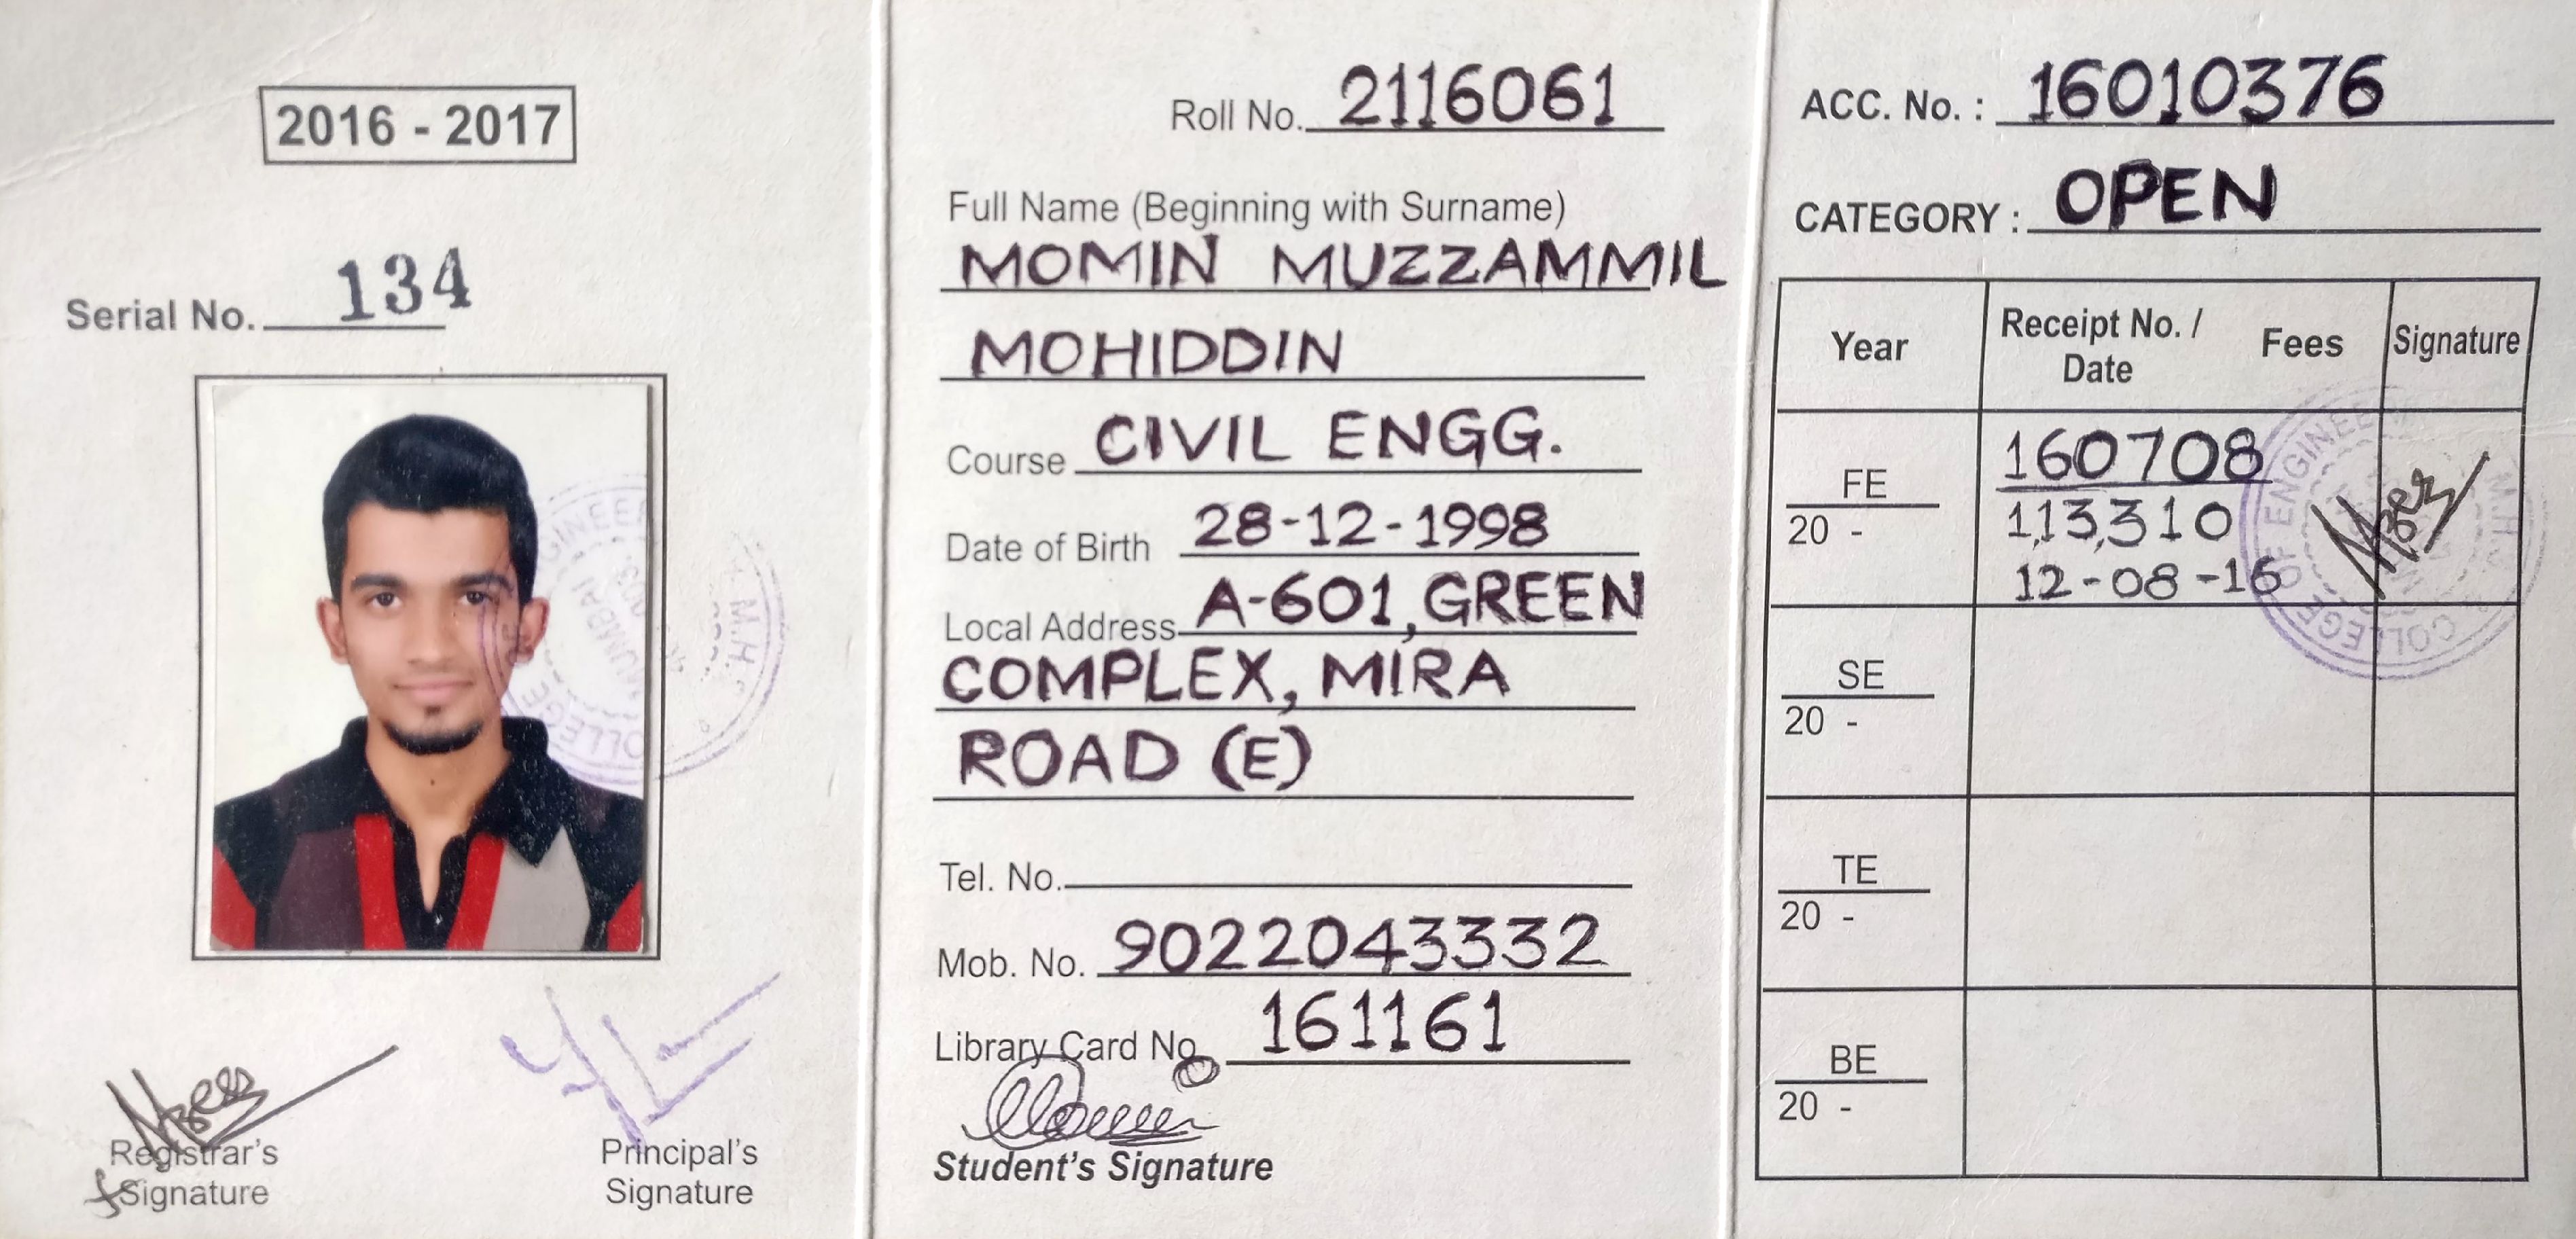 2016 - 2017
Serial No. 134
Registrar's
Signature
Principal's
Signature
Roll No. 2116061
Full Name (Beginning with Surname)
MOMIN MUZZAMMIL
MOHIDDIN
Course CIVIL ENGG.
Date of Birth 28-12-1998
Local Address A-601, GREEN
COMPLEX, MIRA
ROAD (E)
Tel. No.
Mob. No. 9022043332
Library Card No. 161161
Student's Signature
ACC. No. : 16010376
CATEGORY : OPEN
Year Receipt No. / Date Fees Signature
FE
20 -
160708
1,13,310
12-08-16
COLLEGE OF ENGINEE
M.H.
SE
20 -
TE
20 -
BE
20 -